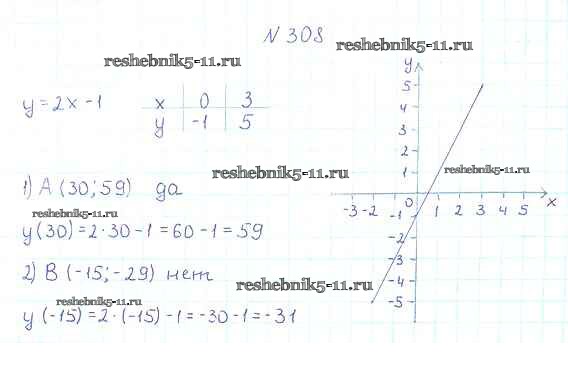 N 308
reshebnik5-11.ru
reshebnik5-11.ru
y = 2x - 1
x 0 3
y -1 5
y
5
4
3
2
1
reshebnik5-11.ru
-3 -2 0 1 2 3 4 5 x
-1
-2
-3
-4
-5
1) A (30; 59) да
reshebnik5-11.ru
reshebnik5-11.ru
y(30) = 2·30 - 1 = 60 - 1 = 59
2) B (-15; -29) нет
reshebnik5-11.ru
reshebnik5-11.ru
y (-15) = 2·(-15) - 1 = -30 - 1 = -31